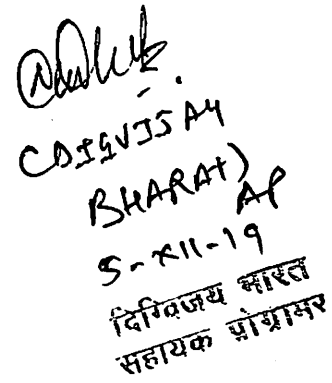 (DIGVIJAY
BHARAT)
AP
5-XII-19
दिग्विजय भारत
सहायक प्रोग्रामर